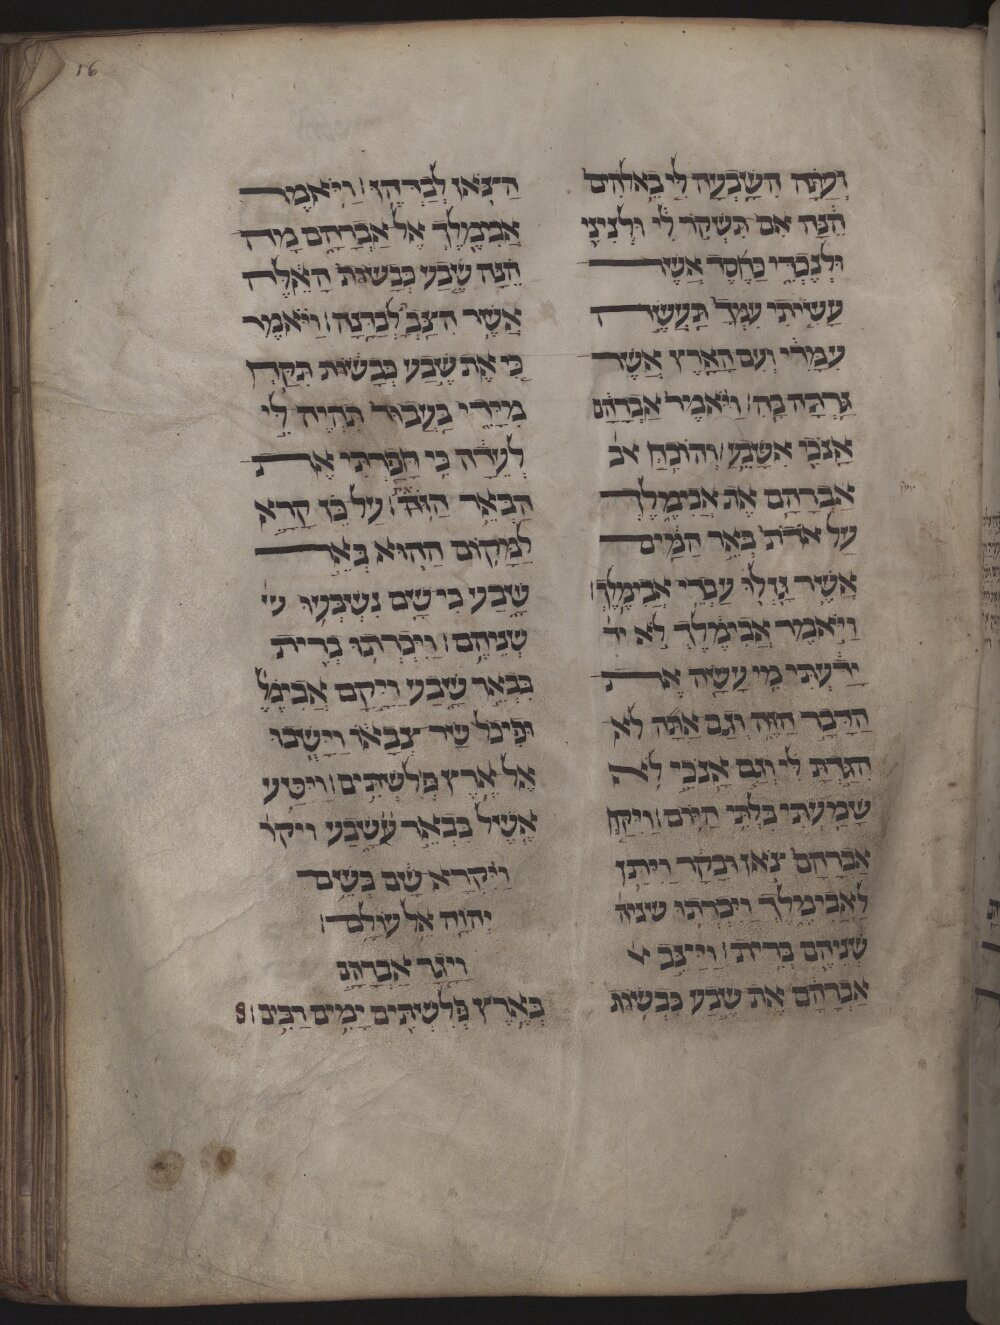 16
ועתה השבעה לי באלהים
הנה אם תשקר לי ולניני
ולנכדי כחסד אשר
עשיתי עמך תעשה
עמדי ועם הארץ אשר
גרתה בה׃ ויאמר אברהם
אנכי אשבע׃ והוכח אב
אברהם את אבימלך
על אדת באר המים
אשר גזלו עבדי אבימלך׃
ויאמר אבימלך לא יד
ידעתי מי עשה את
הדבר הזה וגם אתה לא
הגדת לי וגם אנכי לא
שמעתי בלתי היום׃ ויקח
אברהם צאן ובקר ויתן
לאבימלך ויכרתו שניה
שניהם ברית׃ ויצב א
אברהם את שבע כבשות
הצאן לבדהן׃ ויאמר
אבימלך אל אברהם מה
הנה שבע כבשות האלה
אשר הצבת לבדנה׃ ויאמר
כי את שבע כבשות תקח
מידי בעבור תהיה לי
לעדה כי חפרתי את
הבאר הזאת׃ על כן קרא
למקום ההוא באר
שבע כי שם נשבעו ש
שניהם׃ ויכרתו ברית
בבאר שבע ויקם אבימל
ופיכל שר צבאו וישבו
אל ארץ פלשתים׃ ויטע
אשל בבאר שבע ויקר
ויקרא שם בשם
יהוה אל עולם׃
ויגר אברהם
בארץ פלשתים ימים רבים׃ פ